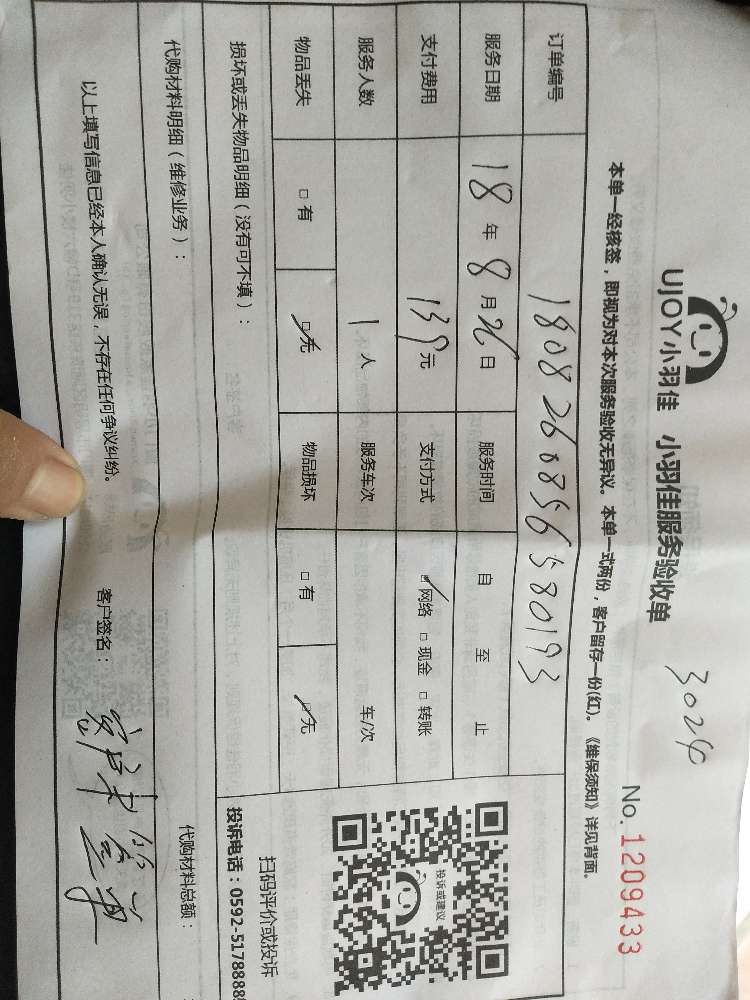 3024
UJOY小羽佳 小羽佳服务验收单
No.1209433
本单一经核签，即视为对本次服务验收无异议。本单一式两份，客户留存一份(红)。《维保须知》详见背面。
订单编号 1808260856580193
服务日期 18年8月26日 服务时间 自 至 止
支付费用 139元 支付方式 ☑网络 □现金 □转账
服务人数 1人 服务车次 车/次
物品丢失 □有 ☑无 物品损坏 □有 ☑无
投诉或建议
扫码评价或投诉
投诉电话：0592-5178888
损坏或丢失物品明细（没有可不填）：
代购材料明细（维修业务）： 代购材料总额：
以上填写信息已经本人确认无误，不存在任何争议纠纷。 客户签名：